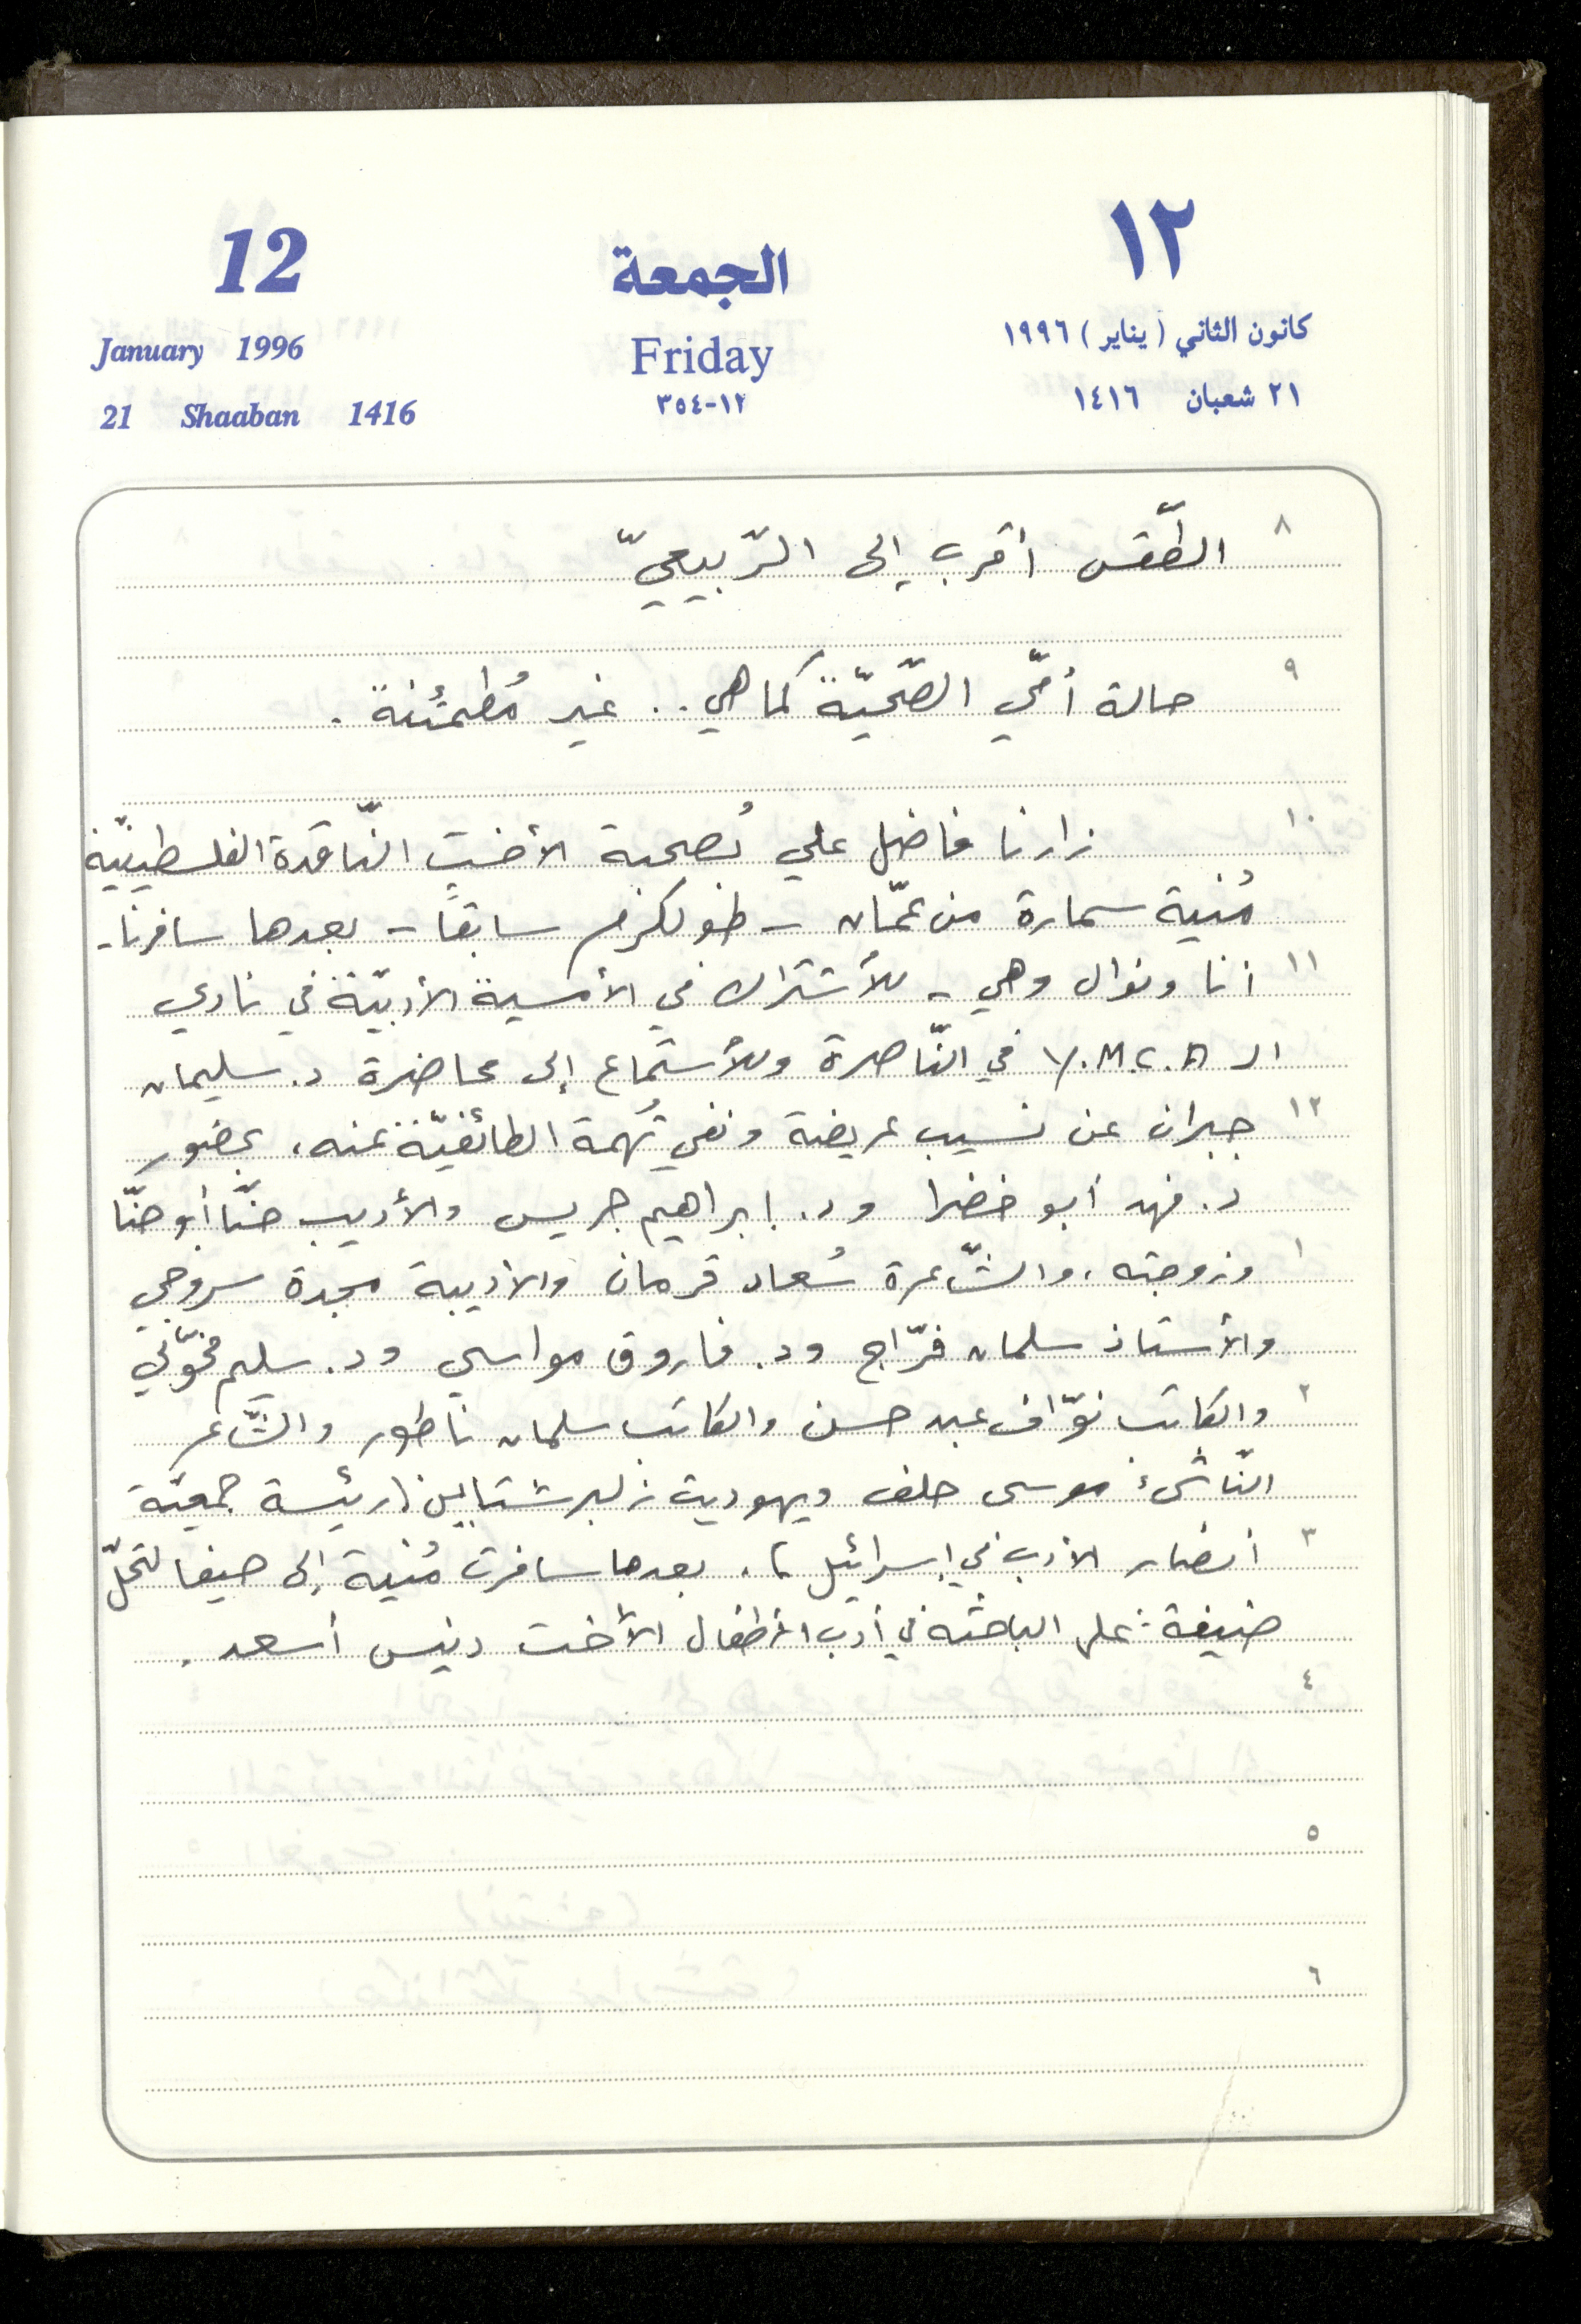 12
الجمعة
١٢
January 1996
Friday
كانون الثاني (يناير) ١٩٩٦
21 Shaaban 1416
١٢-٣٥٤
٢١ شعبان ١٤١٦
٨ الطّقس أقرب إلى الرّبيعيّ
٩ حالة أمّي الصّحيّة كما هي.. غير مُطمئنة.
١٠ زارنا فاضل علي بُصحبة الأخت النّاقدة الفلسطينيّة
مُنية سمارة من عمّان - طولكرم سابقًا - بعدها سافرنا -
١١ أنا ونوال وهي - للأشتراك في الأمسية الأدبيّة في نادي
الـ Y.M.C.A في النّاصرة وللأستماع إلى محاضرة د. سليمان
١٢ جبران عن نسيب عريضة ونفي تُهمة الطائفيّة عنه، بحضور
د. فهد أبو خضرا ود. ابراهيم جريس والأديب حنّا أبو حنّا
١ وزوجته، والشّاعرة سُعاد قرمان والأديبة مجدة سروجي
والأستاذ سلمان فرّاج ود. فاروق مواسي ود. سليم مخّولي
٢ والكاتب نوّاف عبد حسن والكاتب سلمان ناطور والشّاعر
النّاشىء موسى حلف ويهوديت زلبرشتاين (رئيسة جمعيّة
٣ أنصار الأدب في إسرائيل)، بعدها سافرت مُنية إلى حيفا لتحلّ
ضيفة على الباحثه في أدب الأطفال الأخت دنيس أسعد.
٤
٥
٦